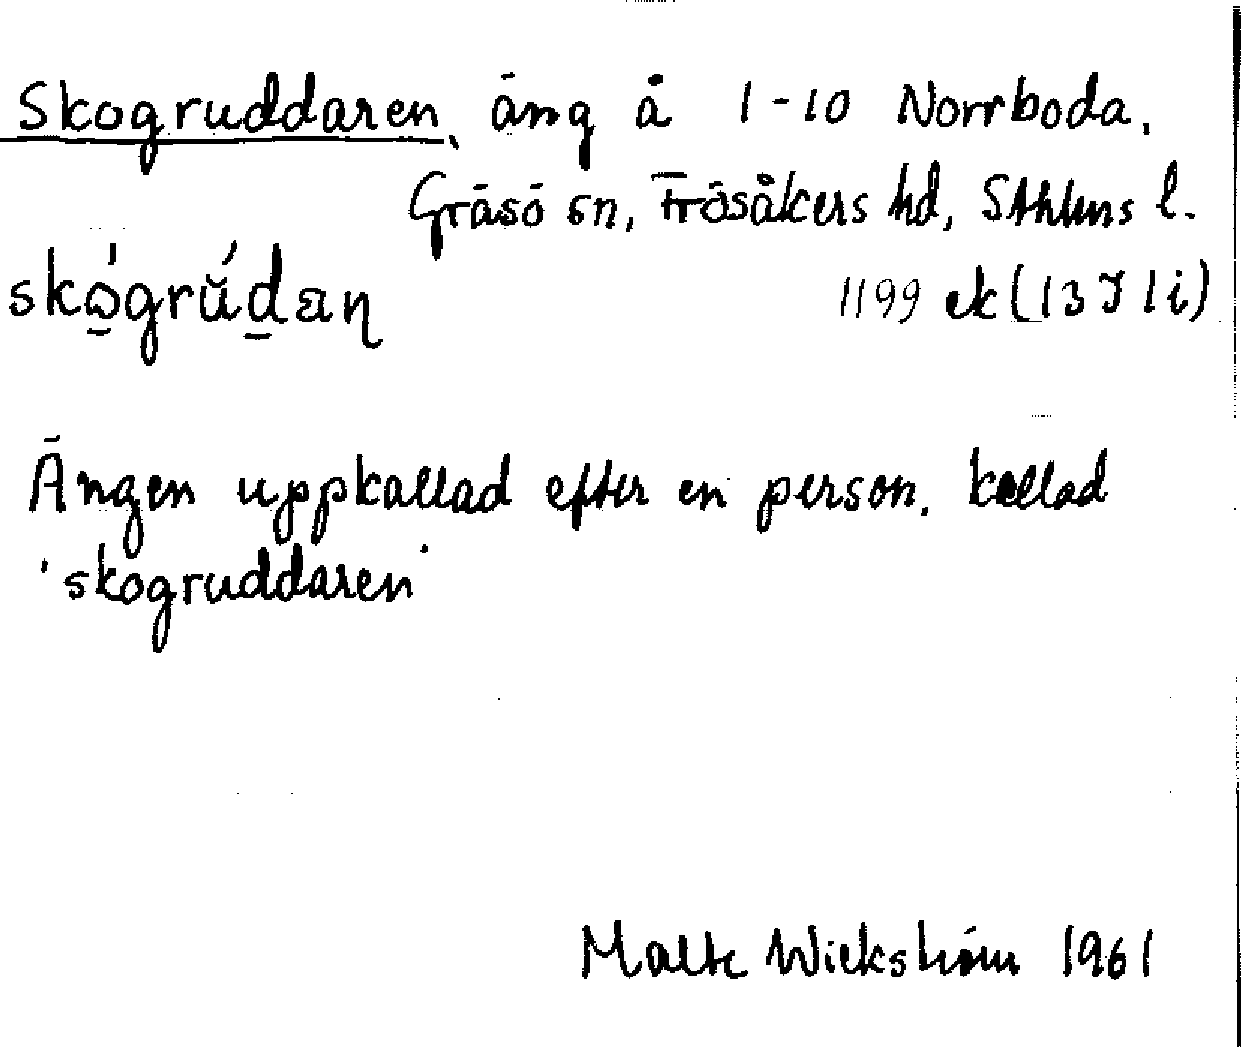 Skogruddaren, äng å 1-10 Norrboda,
Gräsö sn, Frösåkers hd, Sthlms l.
skǫ́grŭ́d̠an 1199 ek (13 I 1i)
Ängen uppkallad efter en person, kallad
'skogruddaren'
Malte Wickström 1961